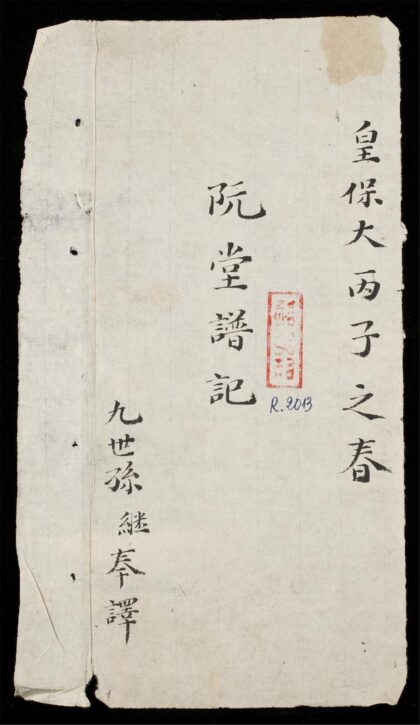 皇保大丙子之春
阮堂譜記
R.2013
九世孫継奉譯